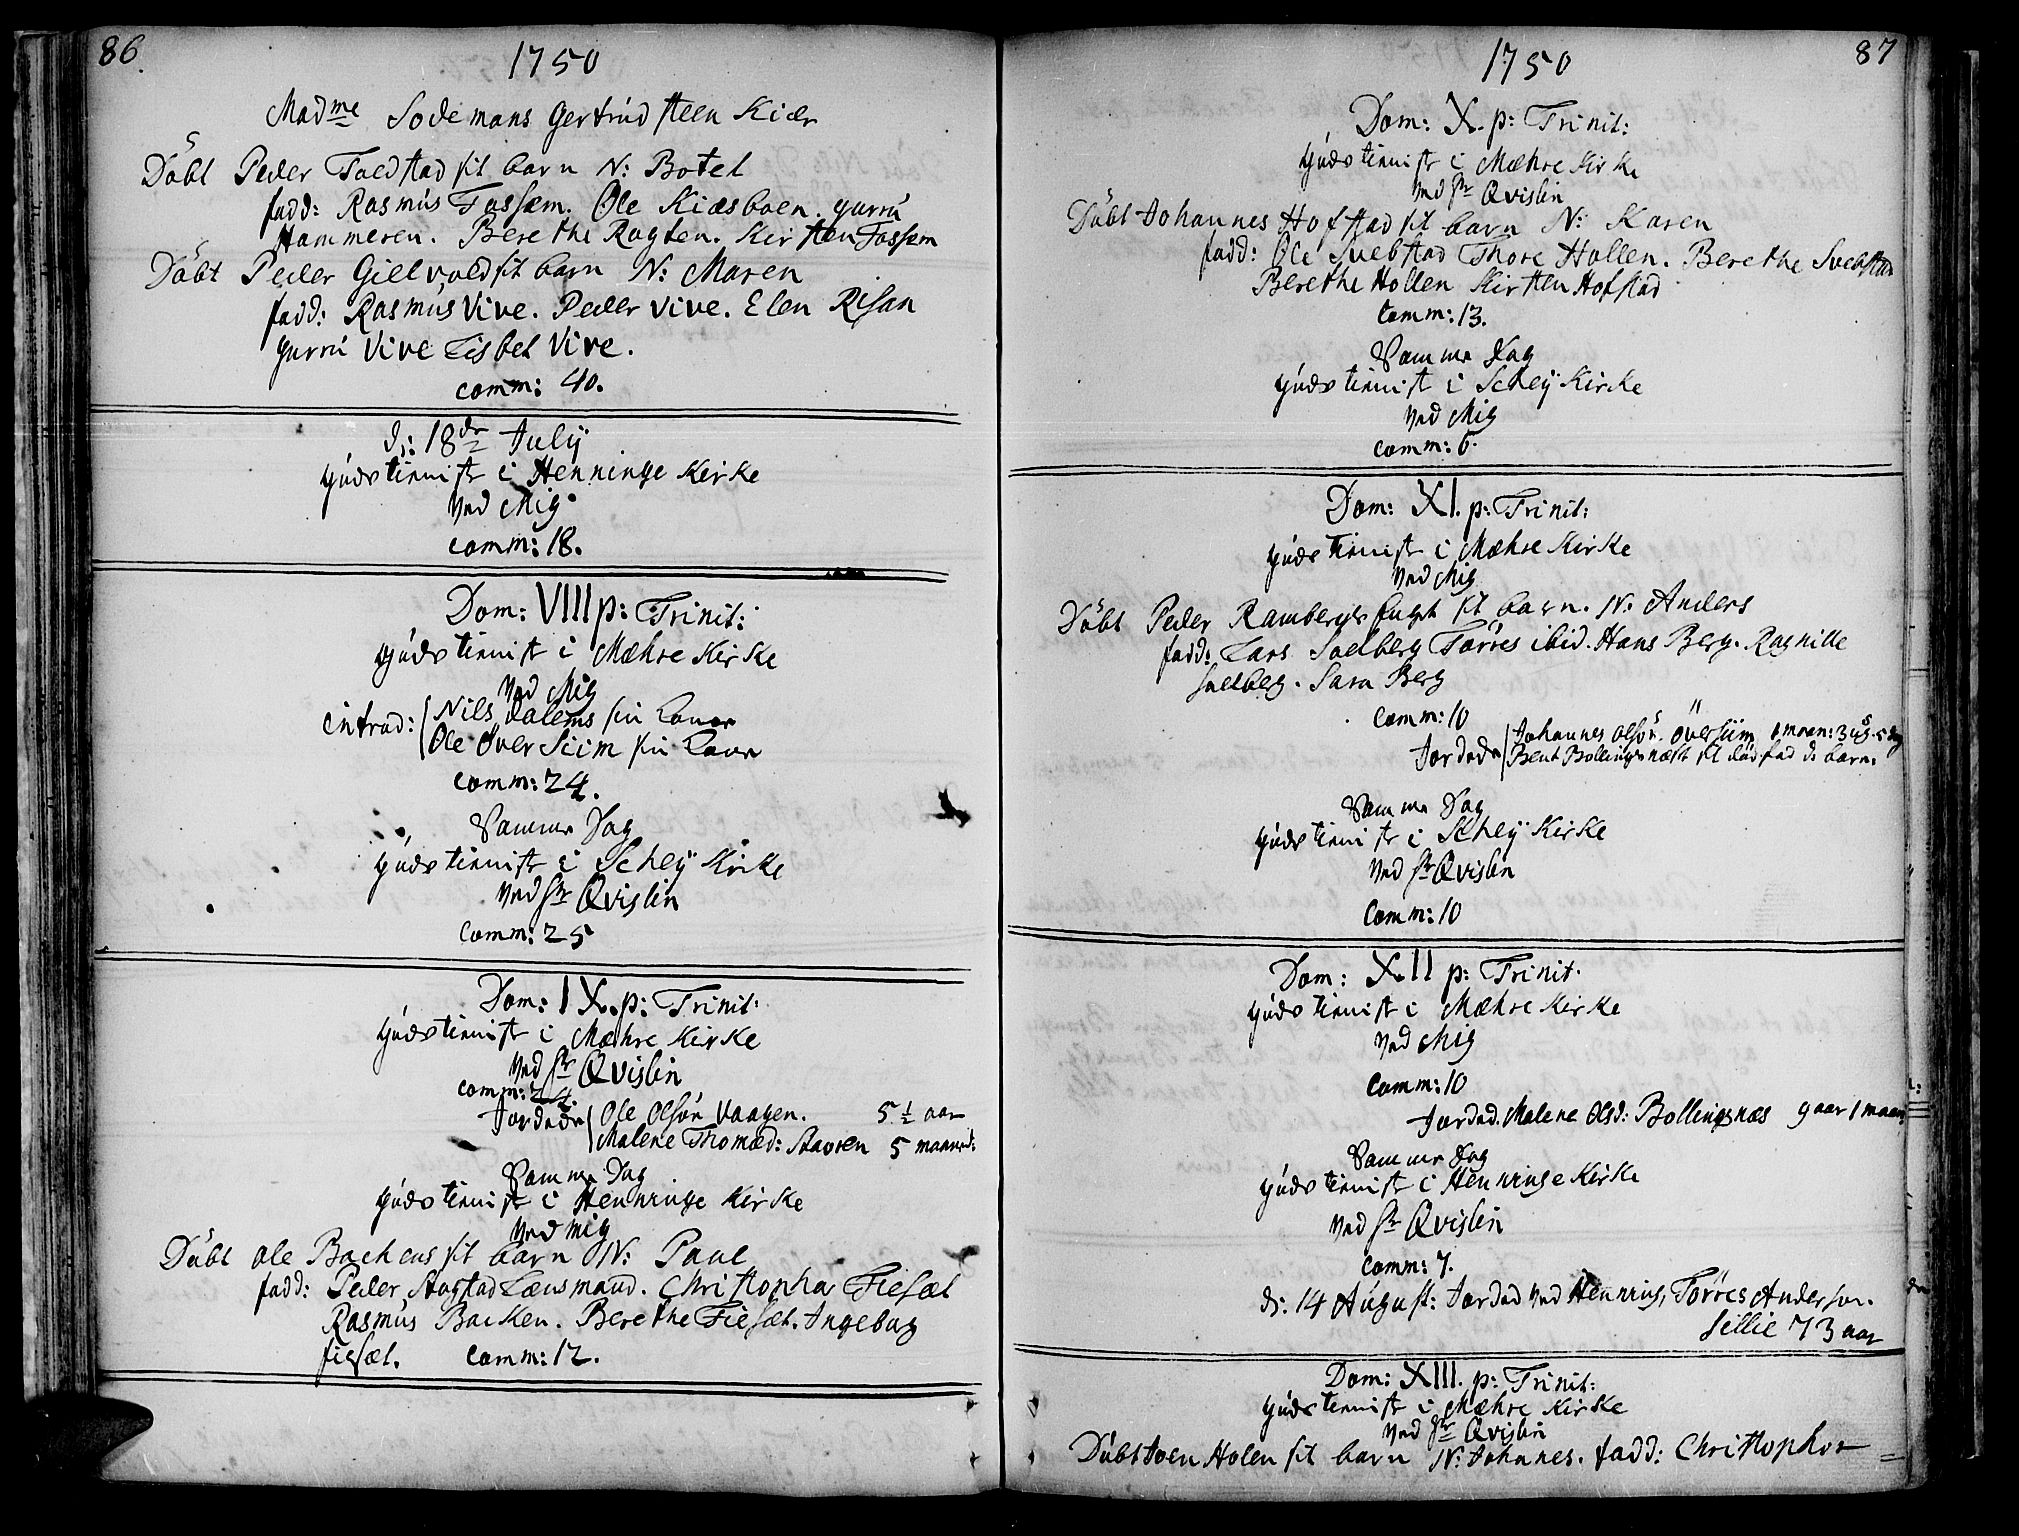 86.
1750
Madme Sodemans Gertrud Steen Kiær
Döbt Peder Foldstad sit barn N: Botel
fadd: Rasmus Fossem. Ole Kiæsboen. Gurru
Hammeren. Berethe Rogten. Kirsten Fossem
Döbt Peder Gielvold sit barn N: Maren
fadd: Rasmus Vive. Peder Vive. Elen Risan
Gurru Vive Lisbet Vive.
comm: 40.
d: 18de July
Guds tienist i Henninge Kirke
Ved Mig
comm: 18.
Dom: VIII p: Trinit:
Guds tienist i Mæhre Kirke
Ved Mig
introd: Nils Dalems sin Kone
Ole Øver Siim sin Kone
comm: 24.
Samme Dag
Guds tienist i Schey Kirke
Ved Hr Qvislin
Comm: 25
Dom: IX. p: Trinit:
Guds tienist i Mæhre Kirke
Ved Hr Qvislin
comm: 24.
Jordede Ole Olsön Vaagen. 5 1/2 aar
Malene Thomæd: Stavren 5 maaned:
Samme Dag
Guds tienist i Henninge Kirke
Ved mig
Döbt Ole Bachens sit barn N: Paul
fadd: Peder Stogstad Lænsmand. Christopher Fiesæt
Rasmus Backen. Berethe Fiesæt. Ingebog
fiesæt. Comm: 12.
87
1750
Dom: X. p: Trinit:
Guds tienist i Mæhre Kirke
Ved Hr Qvislin
Döbt Johannes Hofstad sit barn N: Karen
fadd: Ole Svebstad Thore Hollen. Berethe Svebstad
Berethe Hollen Kirsten Hofstad
Comm: 13.
Samme Dag
Guds tienist i Schey Kirke
Ved Mig
comm: 6.
Dom: XI. p: Trinit:
Guds tienist i Mæhre Kirke
Ved Mig
Döbt Peder Rambergs sit barn. N: Anders
fadd: Lars Soelberg Torres ibid. Hans Berg. Ragnille
Soelberg. Sara Berg
Comm: 10
Jordede Johannes Olsön. Översiim 1 maan: 3 ug. 5 dag
Bent Bollingsnæss sit död fød: barn.
Samme Dag
Guds tienist i Schey Kirke
Ved Hr Qvislin
Comm: 10
Dom: XII p: Trinit.
Guds tienist i Mæhre Kirke
Ved Mig
Comm: 10
Jorded. Malene Olsd: Bollingsnæs 9 aar 1 maan:
Samme Dag
Guds tienist i Henninge Kirke
Ved Hr Qvislin
Comm: 7.
d: 14 August: Jorded Ved Henning, Törres Anderson.
Sellie 73 aar
Dom: XIII. p: Trinit:
Guds tienist i Mæhre Kirke
Ved Hr Qvislin
Döbt Joen Holen sit barn N: Johannes. fadd: Christopher